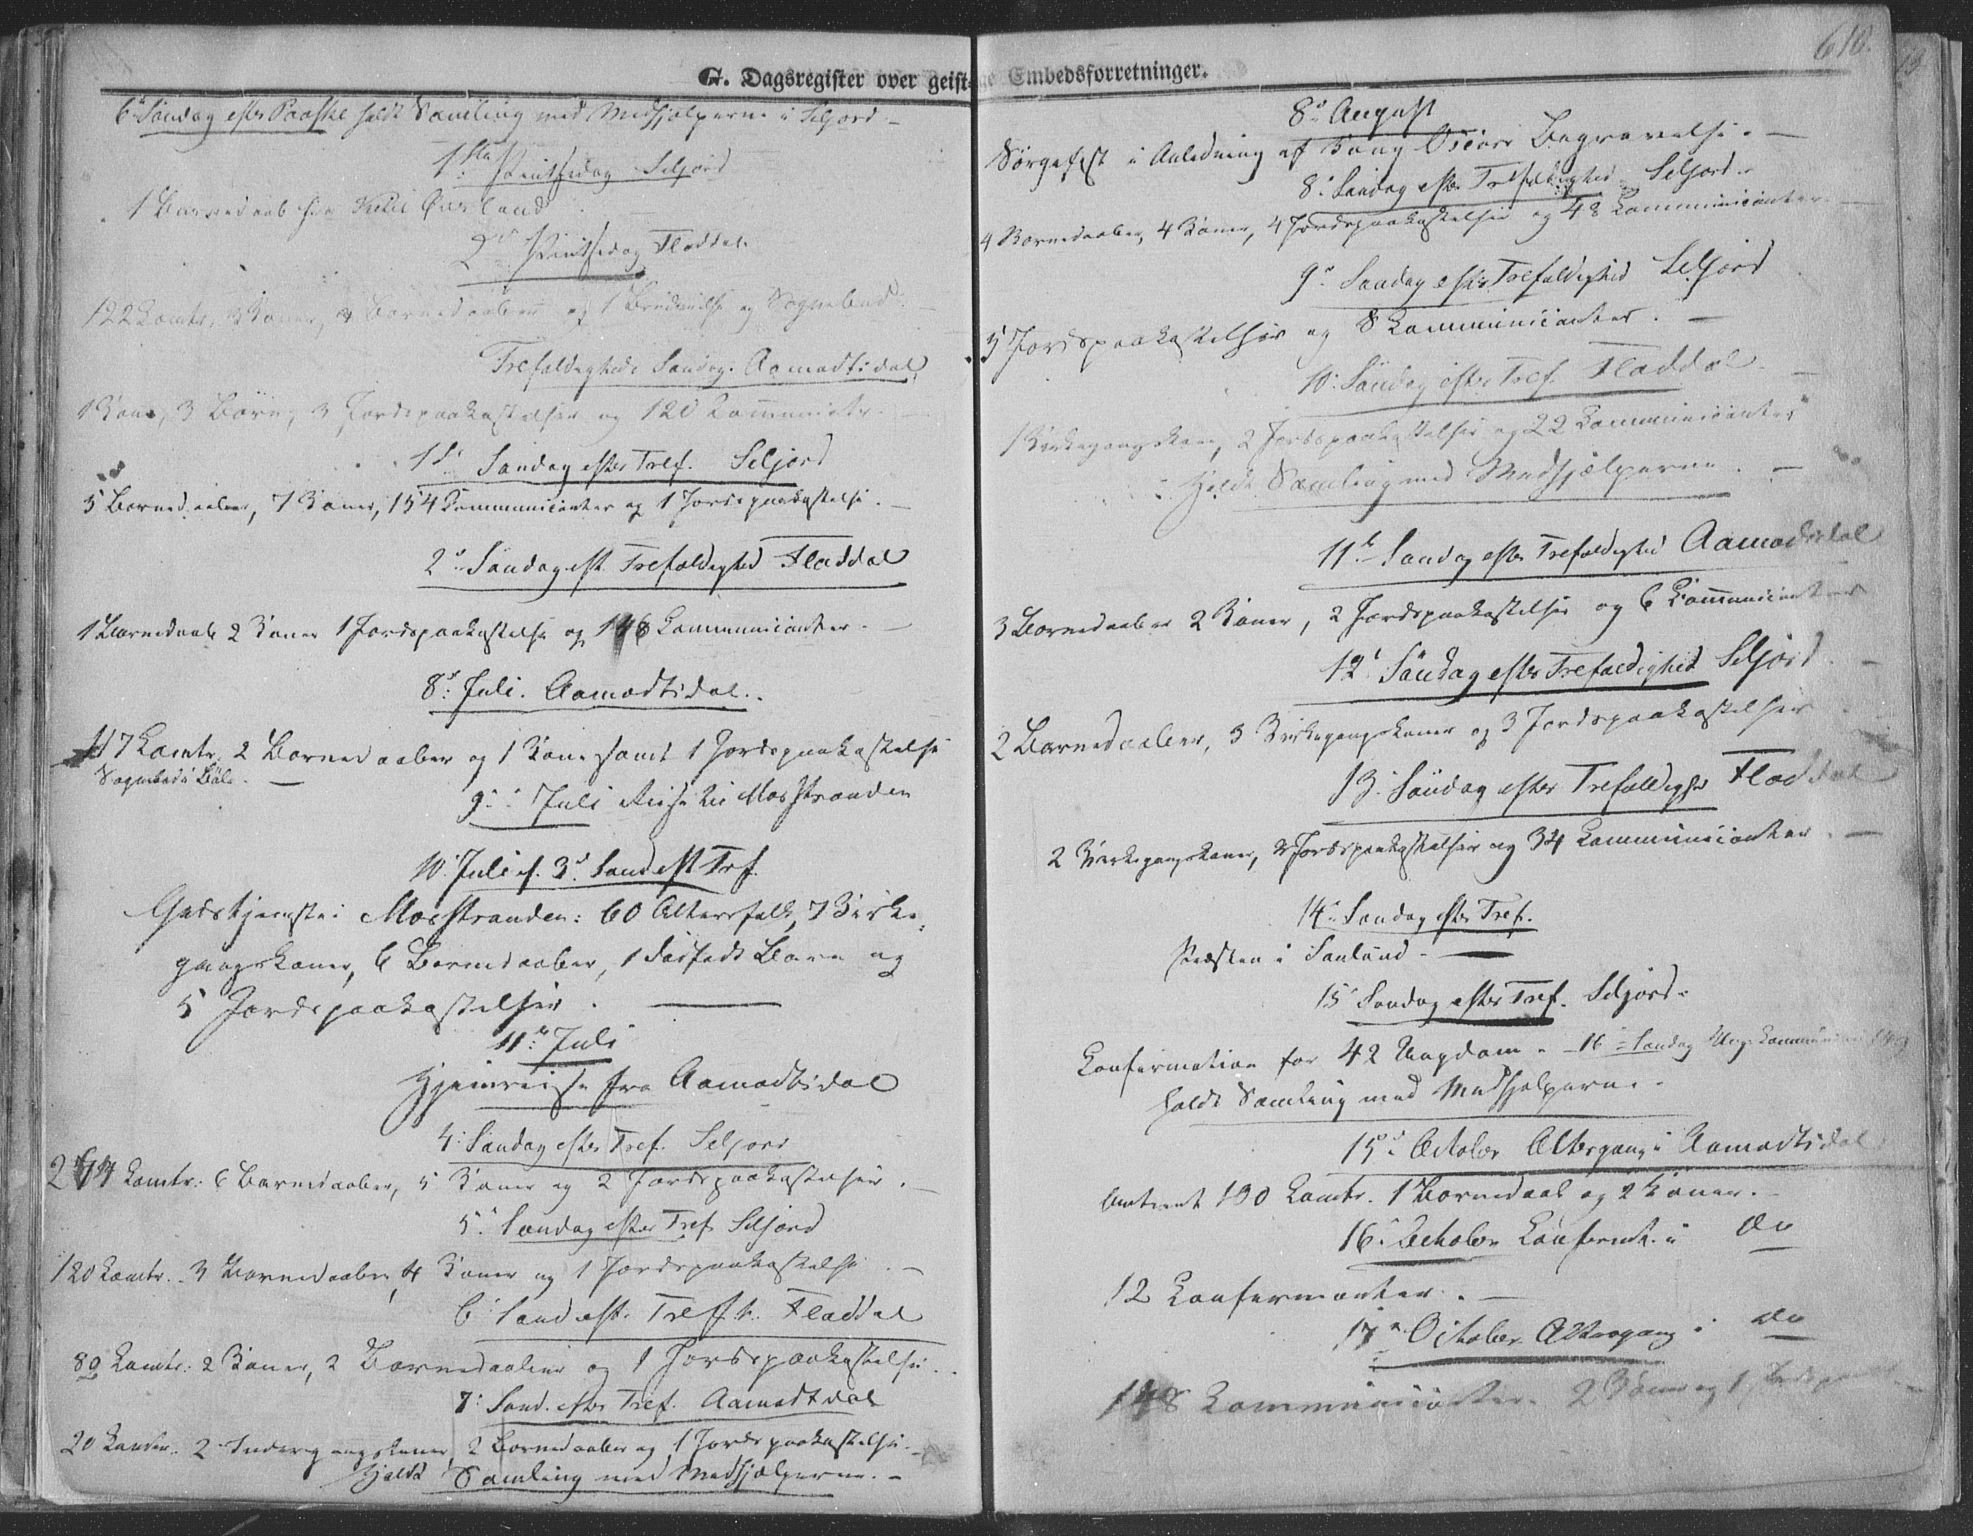 G. Dagsregister over geistlige Embedsforretninger.
6te Søndag efter Paaske holdt Samling med Medhjælperne i Seljord –
1ste Pintsedag Seljord
1 Barnedaab
2den Pintsedag Fladdal.
122 Comtr. 3 Koner, Barnedaaben og 1 og Sognebud.
Trefoldigheds Søndag. Aamodtsdal.
1 Kone, 3 Børn, 3 Jordspaakastelser og 120 Communictr. –
1ste Søndag efter Tref. Seljord
5 Barnedaaber, 7 Koner, 154 Communicanter og 1 Jordspaakastelse. –
2den Søndag eft. Trefoldighed Fladdal
1 Barnedaab 2 Koner 1 Jordspaakastelse og Communicanter. –
8de Juli. Aamodtsdal.
117 Comtr. 2 Barnedaaber og 1 Kone samt 1 Jordspaakastelse
Sognebud i –
9de Juli Reise til Mosstranden
10. Juli ɔ: 3die Sønd eft Trf.
Gudstjeneste i Mosstranden: 60 Altersfolk, 7 Kirke-
gangskoner, 6 Barnedaaber, 1 Barn og
5 Jordspaakastelser. —
11te Juli
Hjemreise fra Aamodtsdal
4. Søndag efter Tref. Seljord
Comtr. 6 Barnedaaber, 5 Koner og 2 Jordspaakastelser. –
5te Søndag efter Tref Seljord
120 Comtr. 3 Barnedaaber, 4 Koner og 1 Jordspaakastelse. –
6te Sønd eft. Treff. Fladdal
89 Comtr. 2 Koner, 2 Barnedaaber og 1 Jordspaakastelse.
7. Sønd. efter Tref. Aamodtdal
20 2 2 Barnedaaber og 1 Jordspaakastelse. –
Holdt Samling med Medhjælperne. –
610.
8de August
Sørgefest i Anledning af Kong Oscars Begravelse. –
8de Søndag efter Trefoldighed Seljord. –
4 Barnedaaber, 4 Koner, 4 Jordspaakastelser og 48 Communicanter.
9de Søndag efter Trefoldighed Seljord
5 Jordspaakastelser og 8 Communicanter. –
10. Søndag efter Tref. Fladdal. –
1 Kirkegangskone, 2 Jordspaakastelser og 22 Communicanter
Holdt Samling med Medhjælperne. –
11te Søndag efter Trefoldighed Aamodtsdal
3 Barnedaaber 2 Koner, 2 Jordspaakastelser og 6 Communicanter
12te Søndag efter Trefoldighed Seljord. –
2 Barnedaaber, 3 Kirkegangskoner og 3 Jordspaakastelser
13. Søndag efter Trefoldighed Fladdal
2 Kirkegangskoner, 2 Jordspaakastelser og 34 Communicanter. –
14de Søndag efter Tref.
Præsten i Sauland. —
15de Søndag efter Tref. Seljord. –
Confirmation for 42 Ungdom. – 16de Søndag Unge
holdt Samling med Medhjælperne. –
15de October Altergang i Aamodtsdal
130 Comtr. 1 Barnedaab og 2 Koner. –
16de October Confirmt. i do
12 Confirmanter. –
17de October Altergang i do
148 Communicanter. 2 Koner og 1